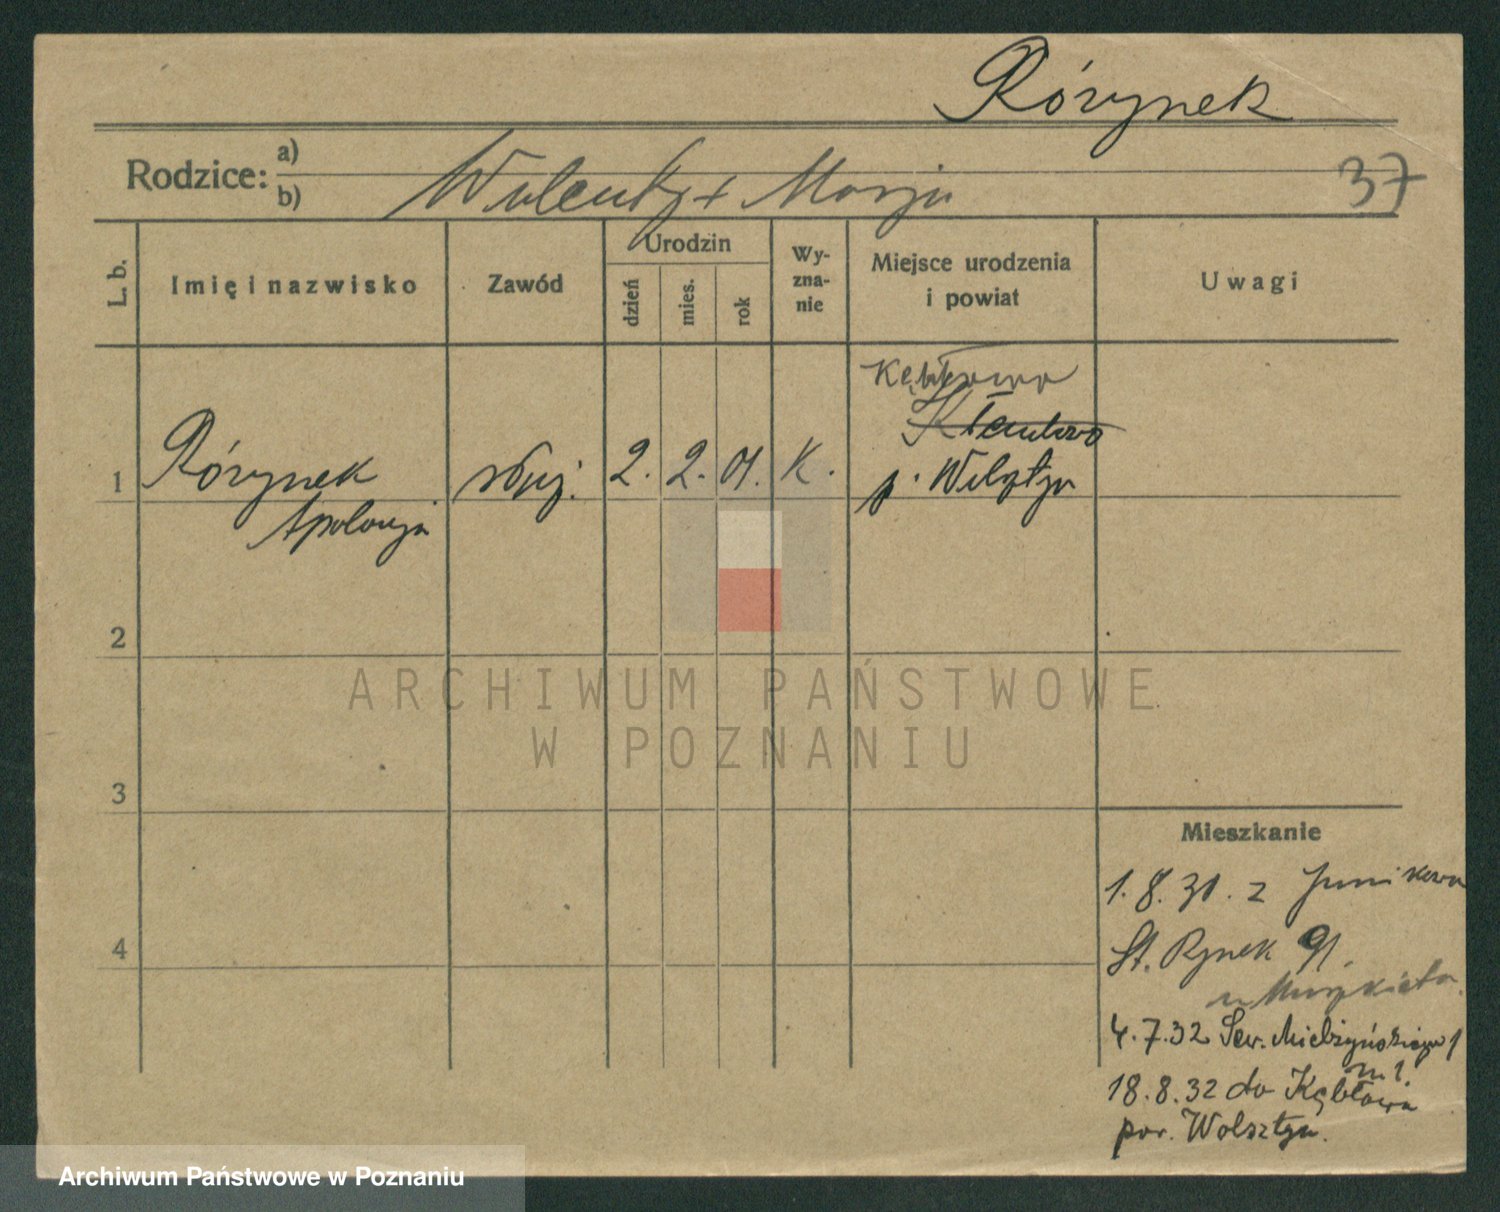 Rózynek
Rodzice: a)
b)
Walenty + Marja
37
L. b.
Imię i nazwisko
Zawód
Urodzin
dzień
mies.
rok
Wy-
zna-
nie
Miejsce urodzenia
i powiat
Uwagi
Kębłowo
1 Rózynek służ. 2. 2. 01. K.
p. Wolsztyn
Apolonja
2
3
4
Mieszkanie
1. 8. 31. z Junikowa
St. Rynek 91.
4.7.32 Sew. Mielżyńskiego 1
m 1.
18.8.32 do Kębłowa
pow. Wolsztyn.
ARCHIWUM PAŃSTWOWE
W POZNANIU
Archiwum Państwowe w Poznaniu